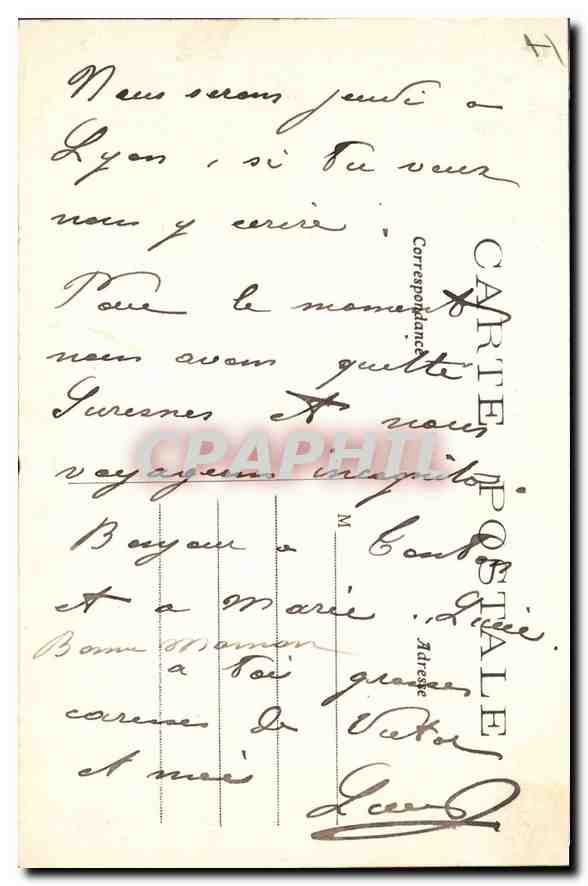 Nous serons jeudi a
Lyon, si tu veux
nous y ecrire.
Pour le moment
nous avons quitté
Suresnes et nous
voyageons incognito.
Bonjour a Tonton
et a Marie Lucie.
Bonne Maman
a toi grosses
caresses de Victor
et moi
CARTE POSTALE
Correspondance
Adresse
M
CPAPHIL